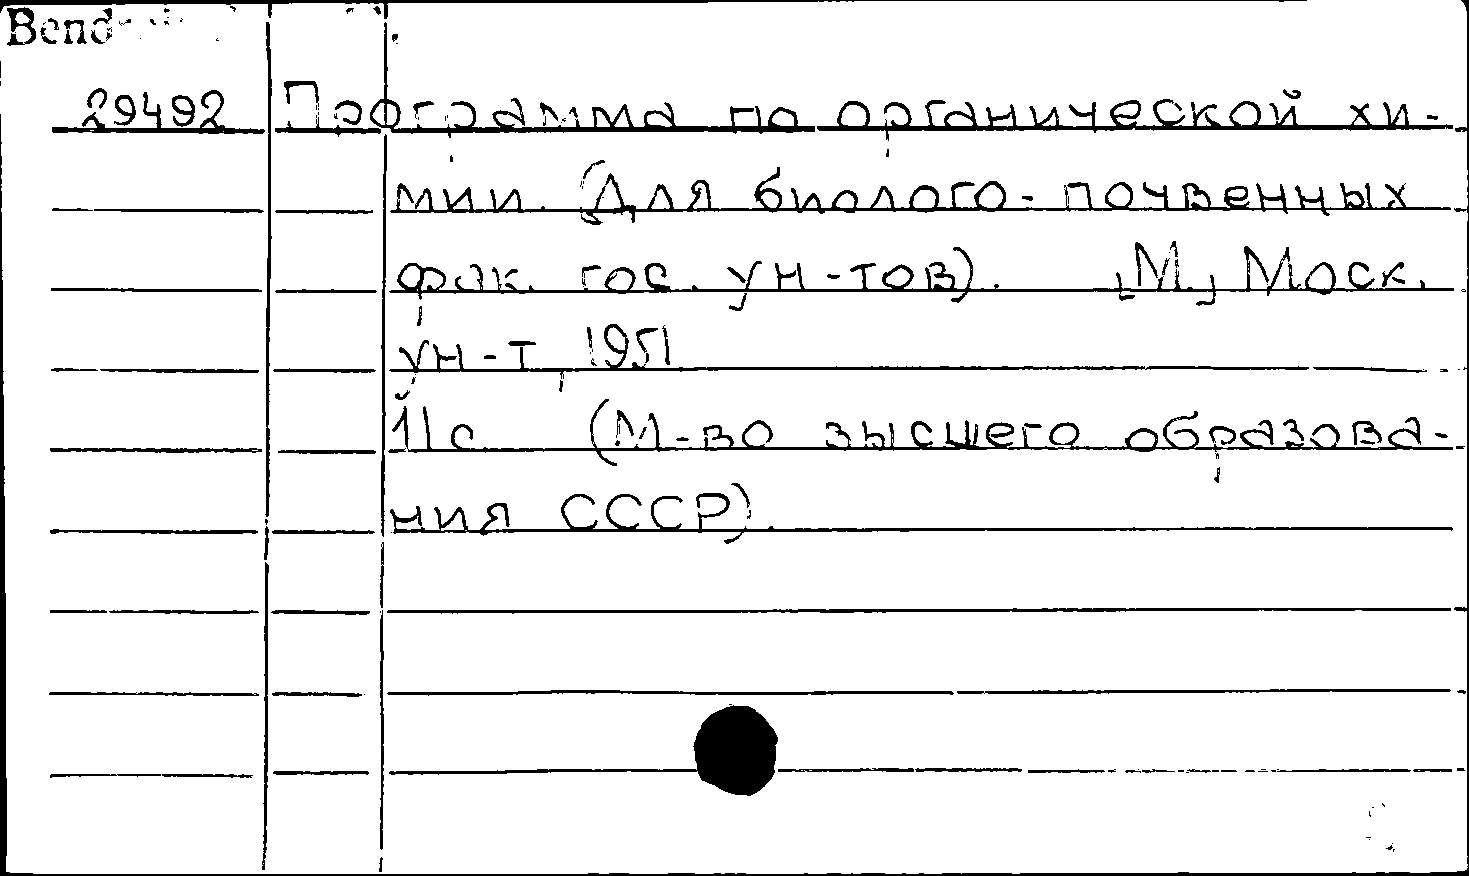 29492 Программа по органической хи-
мии. (Для биолого-почвенных
фак. гос. ун-тов). [М.] Моск.
ун-т, 1951
11 с. (М-во высшего образова-
ния СССР).